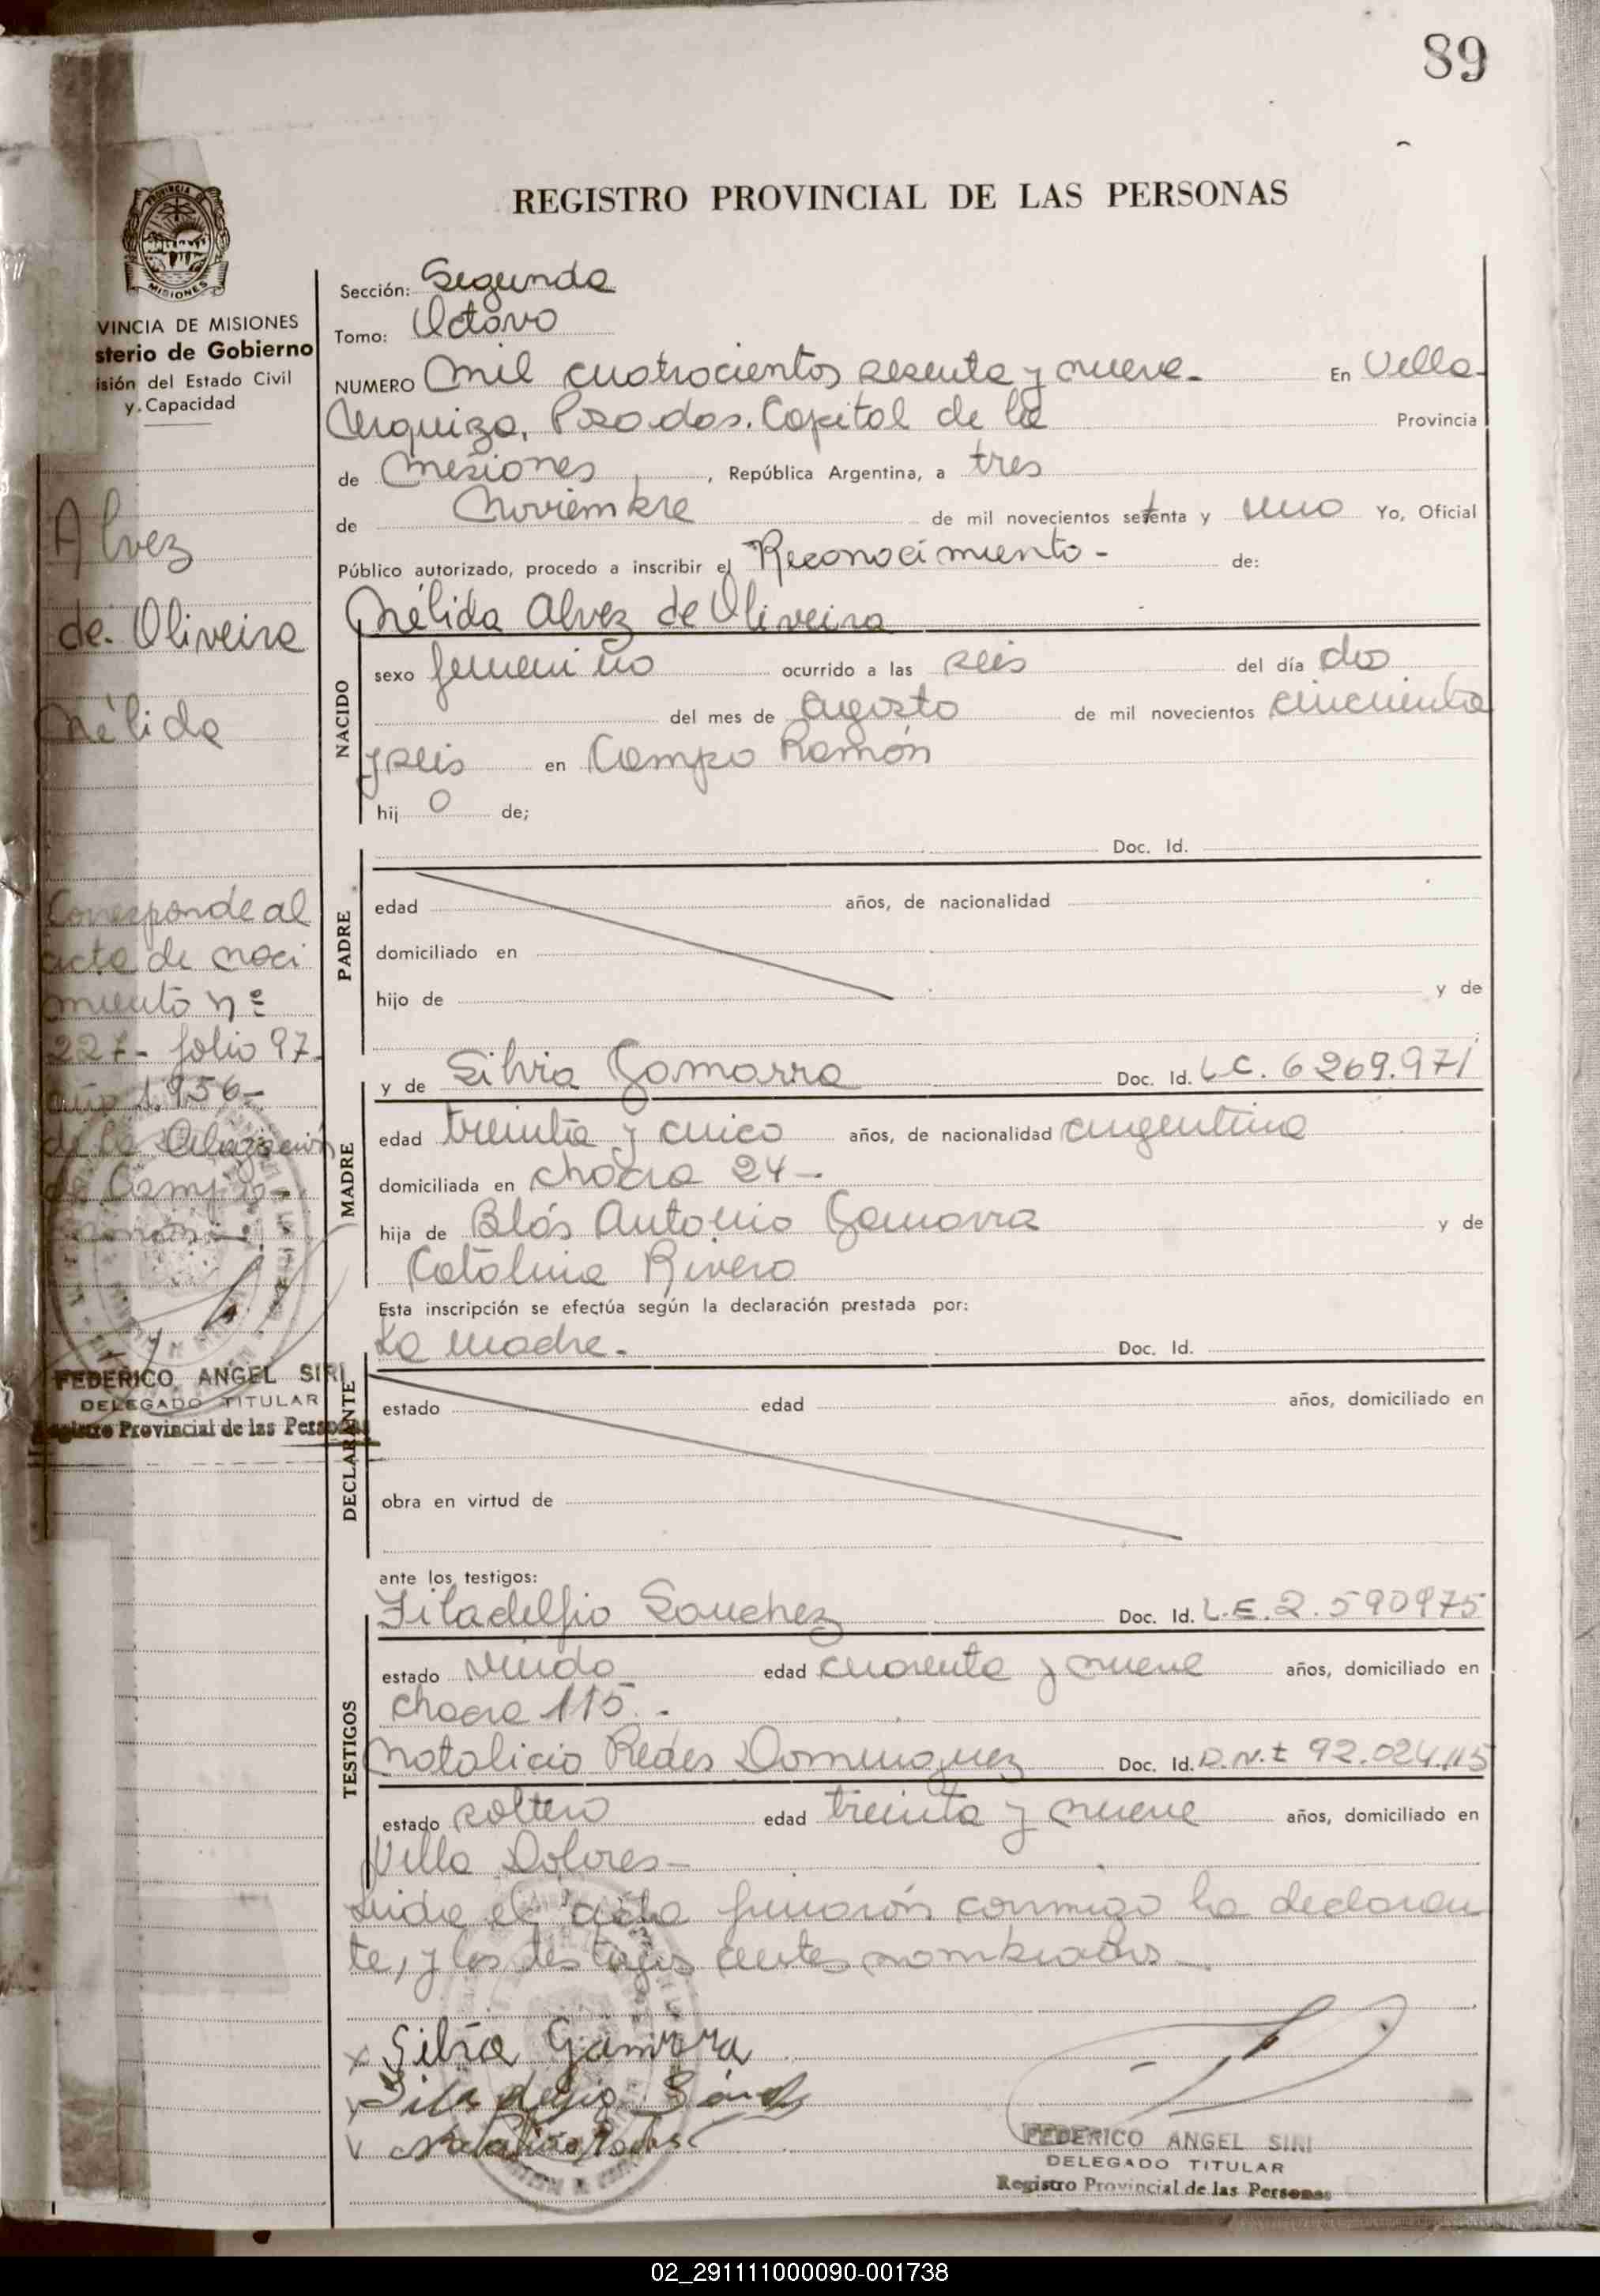 89
REGISTRO PROVINCIAL DE LAS PERSONAS
PROVINCIA
MISIONES
VINCIA DE MISIONES
sterio de Gobierno
isión del Estado Civil
y Capacidad
Sección: Segunda
Tomo: Octavo
NUMERO Mil cuatrocientos sesenta y nueve- En Villa
Urquiza, Posadas. Capital de la Provincia
de Misiones, República Argentina, a tres
de Noviembre de mil novecientos setenta y uno Yo, Oficial
Público autorizado, procedo a inscribir el Reconocimiento- de:
Nélida Alvez de Oliveira
Alvez
de Oliveira
Nélida
NACIDO
sexo femenino ocurrido a las seis del día dos
del mes de agosto de mil novecientos cincuenta
y seis en Campo Ramón
hij o de;
Doc. Id.
PADRE
edad años, de nacionalidad
domiciliado en
hijo de y de
Corresponde al
acta de naci
miento nº
227- folio 97-
año 1.956-
de la Delegación
de Campo
Ramón-
y de Silvia Gamarra Doc. Id. L.C. 6269.971
MADRE
edad treinta y cinco años, de nacionalidad argentina
domiciliada en chacra 24-
hija de Blás Antonio Gamarra y de
Catalina Rivero
Esta inscripción se efectúa según la declaración prestada por:
La madre. Doc. Id.
FEDERICO ANGEL SIRI
DELEGADO TITULAR
Registro Provincial de las Personas
DECLARANTE
estado edad años, domiciliado en
obra en virtud de
ante los testigos:
Filadelfio Sanchez Doc. Id. L.E. 2.590975
TESTIGOS
estado viudo edad cuarenta y nueve años, domiciliado en
chacra 115.-
Natalicio Redes Dominguez Doc. Id. D.N.I 92.024.115
estado soltero edad treinta y nueve años, domiciliado en
Villa Dolores-
Leida el acta firmarón conmigo la declaran
te, y los testigos antes nombrados-
x Silvia Gamarra
Filadelfio
FEDERICO ANGEL SIRI
DELEGADO TITULAR
Registro Provincial de las Personas
02_291111000090-001738